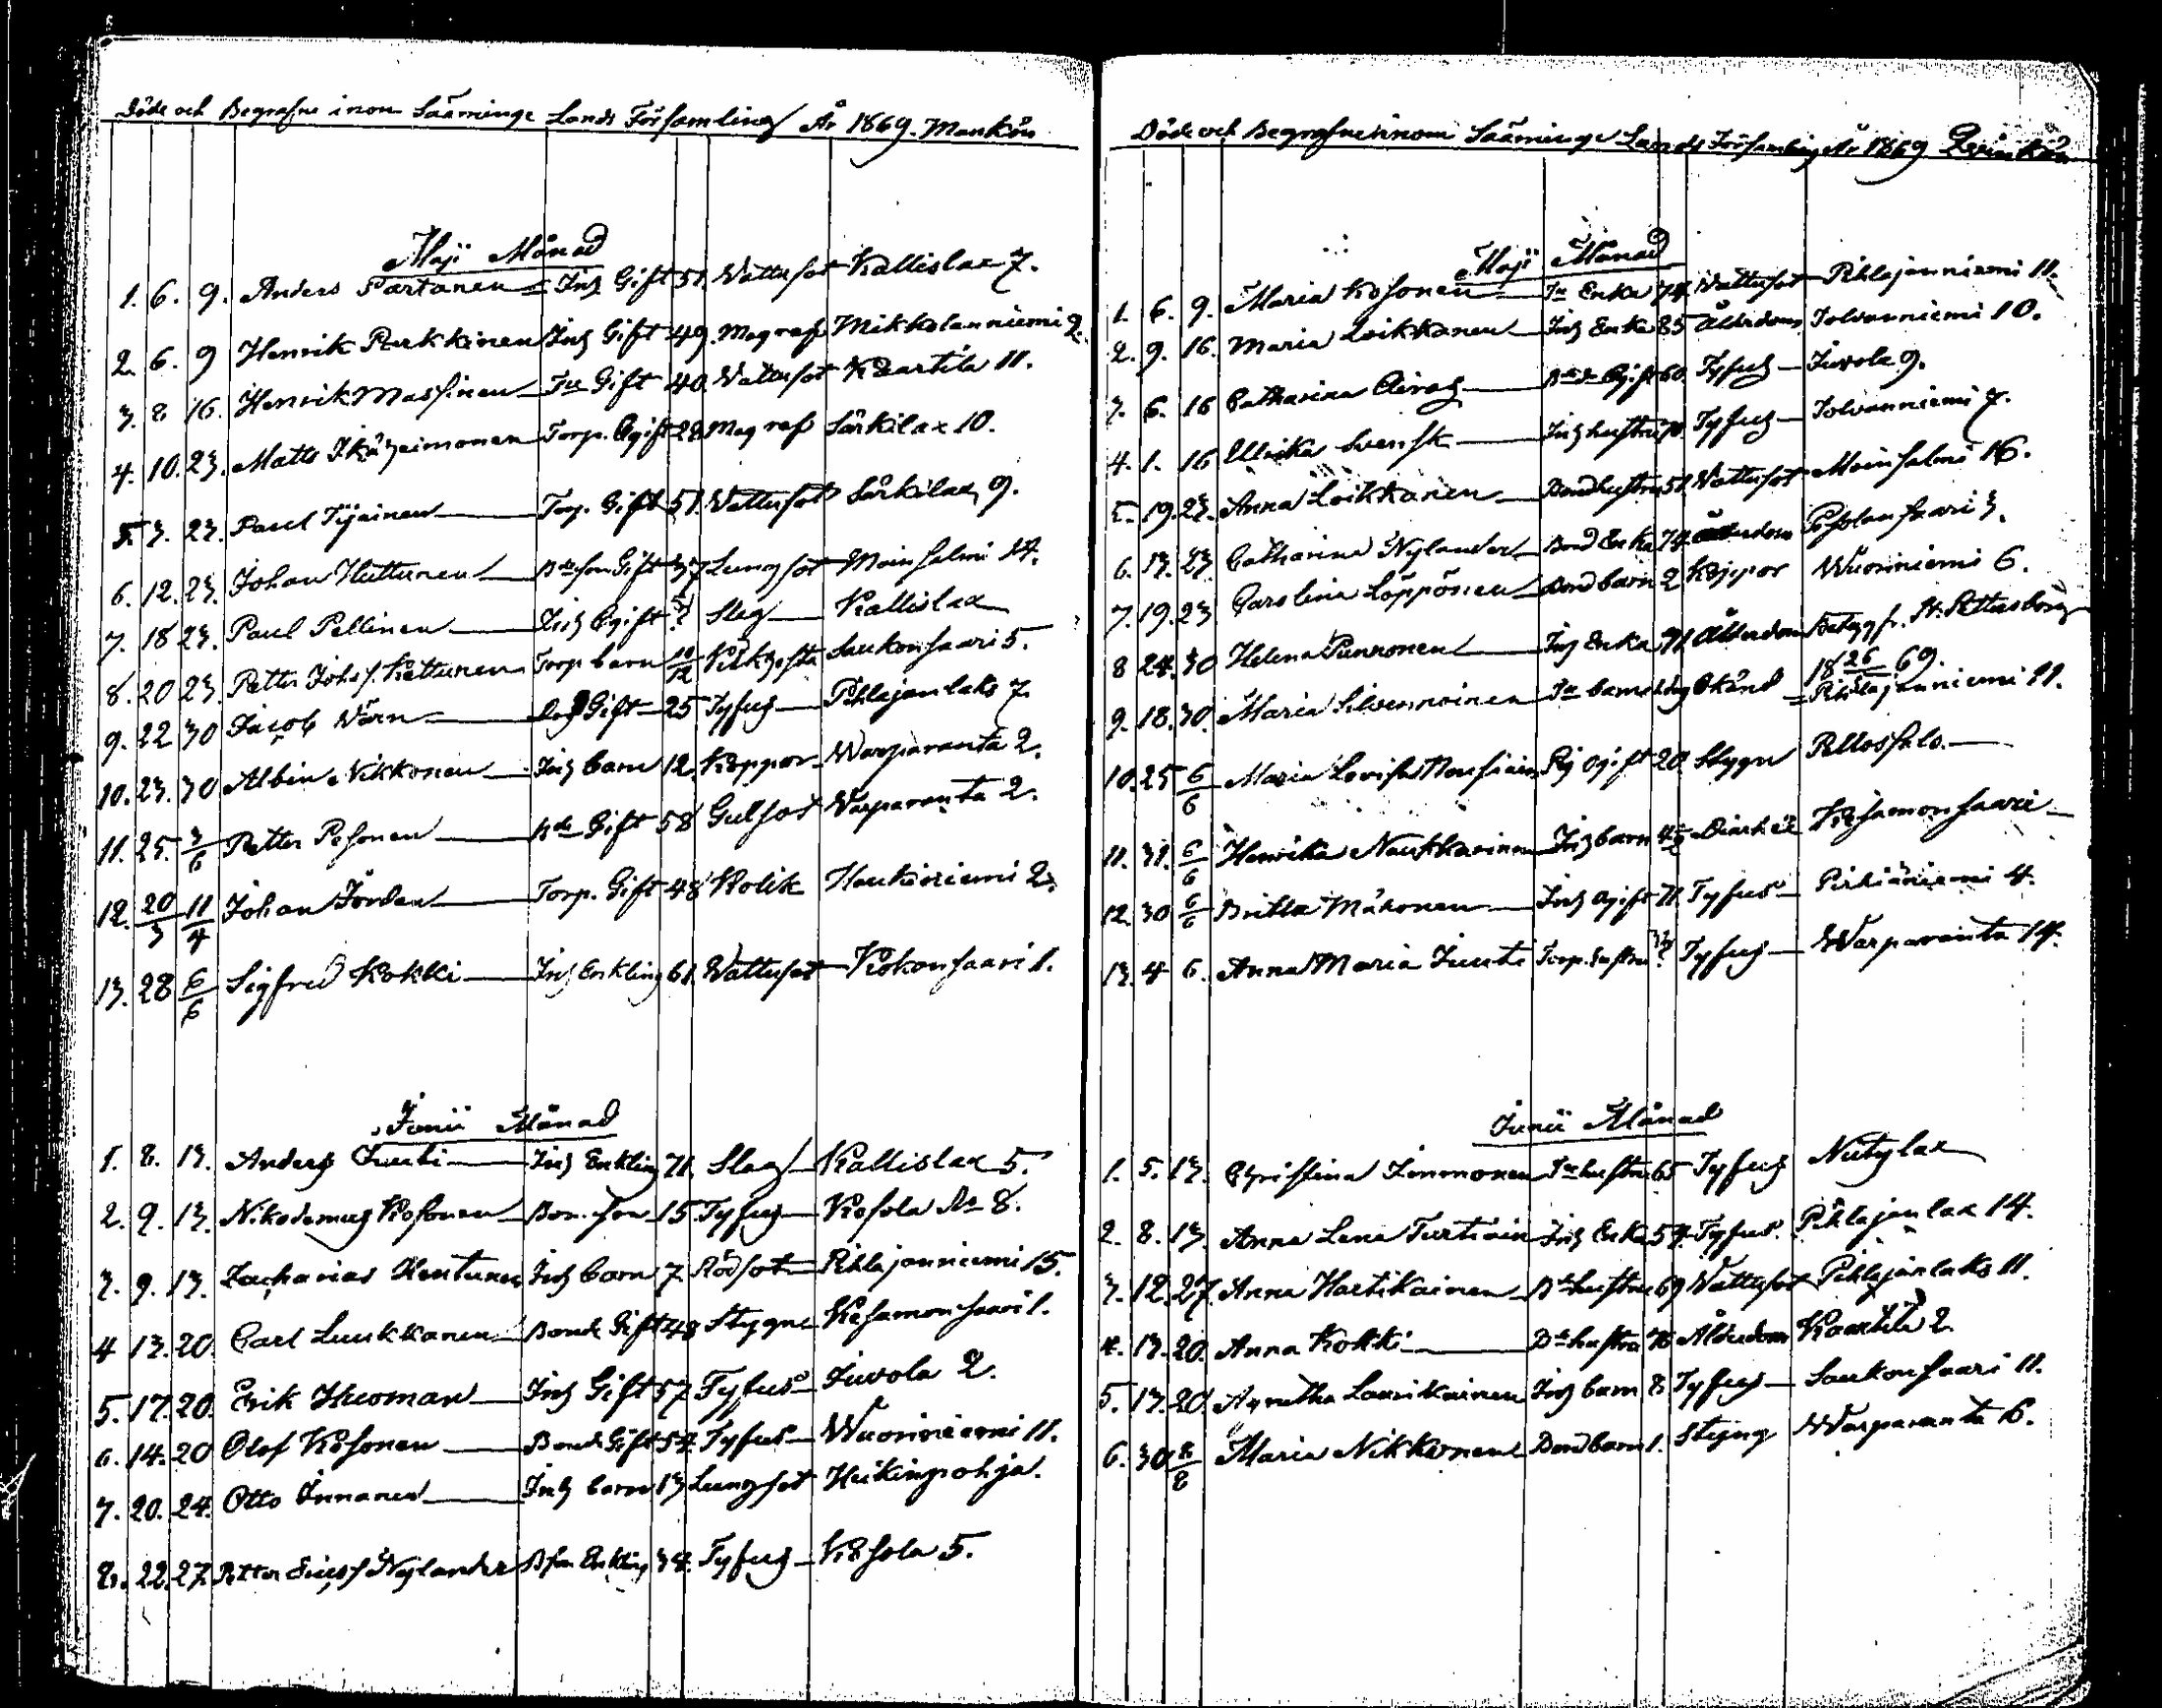 Döde och Begrafne inom Sääminge Lands Församling År 1869. Mankön
Maji Månad
1. 6. 9. Anders Partanen Inh Gift 51. Vattusot Kallislax 7.
2. 6. 9 Henrik Purkkinen Inh Gift 49. Magref Mikkolanniemi 2.
3. 8 16. Henrik Massinen Gift 40. Vattusot Kaartila 11.
4. 10. 23. Matts Torp. Ogift 28 Magref Särkilax 10.
5. 3. 23. Paul Tijainen Torp. Gift 51. Vattusot Särkilax 9.
6. 12. 23. Johan Huttunen Gift 37 Lungsot Moinsalmi 14.
7. 18 23. Paul Pellinen Inh Ogift ? Slag Kallislax
8. 20 23. Petter Johs. Kettunen Torp barn 10/12 Saukonsaari 5.
9. 22 30 Jacob Wärn Gift 25 Tyfus Pihlajanlaks 7.
10. 23. 30 Albin Nikkonen Inh barn 12. Koppor Warparanta 2.
11. 25. 3/6 Petter Pesonen Gift 58 Gulsot Warparanta 2.
12. 20/3 11/4 Johan Jordan Torp. Gift 48 Kolik Haukiniemi 2.
13. 28 6/6 Sigfred Kokki Inh Enkling 61. Vattusot Kokonsaari 1.
Junii Månad
1. 8. 13. Anders Juuti Inh Enkling 71. Slag Kallislax 5.
2. 9. 13. Nikodemus Kosonen Bon. son 15. Tyfus Kosola No 8.
3. 9. 13. Zacharias Kentunen Inh barn 7. Rödsot Pihlajanniemi 15.
4 13. 20. Carl Luukkanen Bond Gift 48 Stygn Kesamonsaari 1.
5. 17. 20. Erik Huoman Inh Gift 57. Tyfus Juvola 2.
6. 14. 20 Olof Kosonen Bond Gift 54. Tyfus Wuoriniemi 11.
7. 20. 24. Otto Innanen Inh barn 13 Lungsot Heikinpohja.
8. 22. 27. Petter Ericss. Nylander Bson Enkling 34. Tyfus Kosola 5.
Döde och Begrafne inom Sääminge Lands Församling År 1869 Qvinkön
Maji Månad
1. 6. 9. Maria Kosonen Enka 74. Vattusot Pihlajanniemi 11.
2. 9. 16. Maria Loikkanen Inh Enka 85 Ålderdom Tolvanniemi 10.
3. 6. 16 Catharina Airas Ogift 60. Tyfus Juvola 9.
4. 1. 16 Ulrika Svensk Inh hustru 70. Tyfus Tolvanniemi 7.
5. 19. 23. Anna Loikkanen Bond hustru 51. Vattusot Moinsalmi 16.
6. 13. 23. Catharina Nylander Bond Enka 74. Ålderdom Pesolansaari 3.
7. 19. 23 Carolina Löppönen Bond barn 2 Koppor Wuoriniemi 6.
8 24. 30 Helena Punnonen Inh Enka 71. Ålderdom Betyg fr. St. Petersborg
18 26/5 69.
9. 18. 30. Maria Silvennoinen barn Okänd Pihlajanniemi 11.
10. 25 6/6 Maria Lovisa Pig ogift 20. Stygn Pellossalo.
11. 31. 6/6 Henrika Naukkarinen Inh barn Diarhé Kesamonsaari
12. 30 6/6 Britta Mähonen Inh ogift 71. Tyfus Pirhiäniemi 4.
13. 4 6. Anna Maria Juuti Torp. hustru ? Tyfus Warparanta 14.
Junii Månad
1. 5. 13. Christina Immonen hustru 65 Tyfus Niitylax
2. 8. 13. Anna Lena Turtiain Inh Enka 54. Tyfus. Pihlajanlax 14.
3. 12. 27. Anna Hartikainen hustru 69 Vattusot Pihlajanlaks 11.
4. 13. 20. Anna Kokki hustru 76 Ålderdom Kaartila 2.
5. 13. 20. Agnetha Laurikainen Inh barn 8. Tyfus Saukonsaari 11.
6. 30 8/8 Maria Nikkonen Bond barn 1. Stygn Warparanta 6.